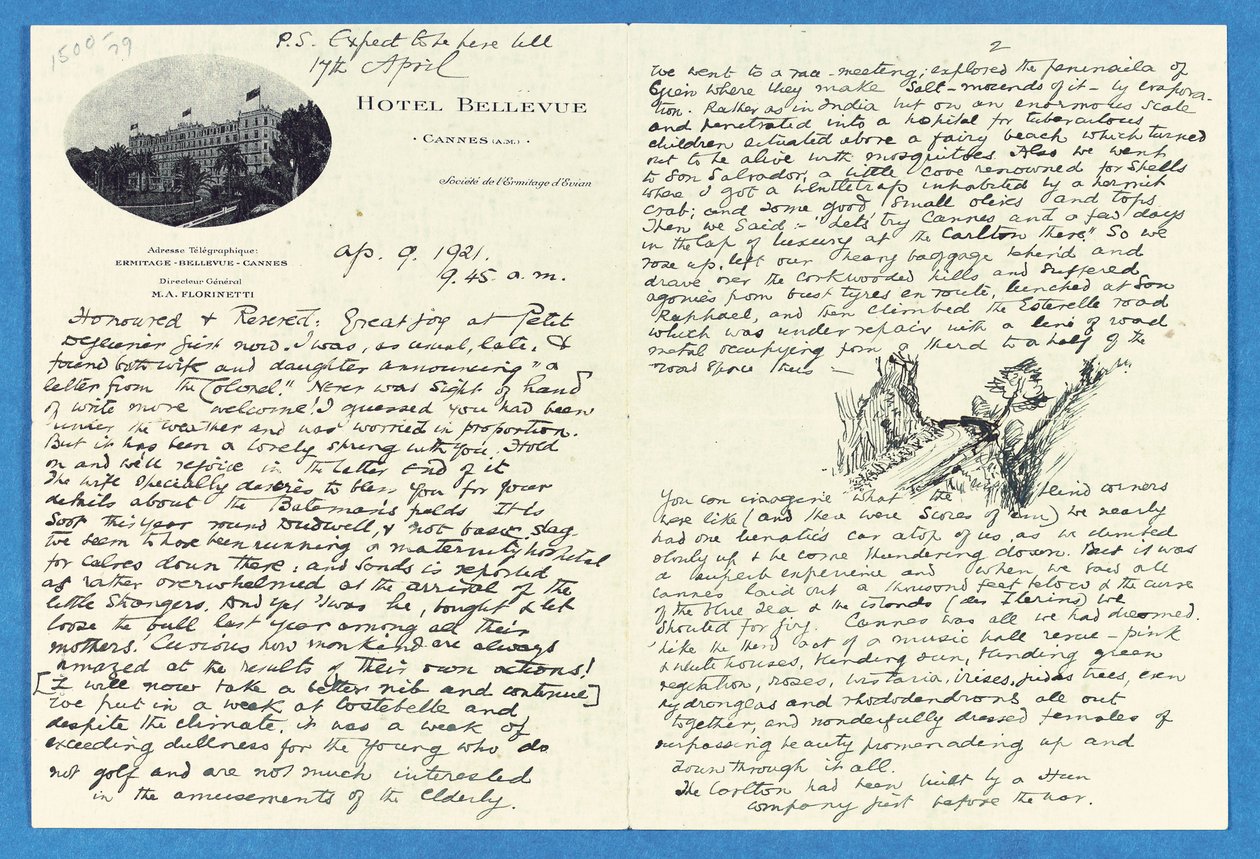 1500-
79
P.S. Expect to be here till
17th April
HOTEL BELLEVUE
· CANNES (A.M.) ·
Société de l'Ermitage d'Evian
Adresse Télégraphique:
ERMITAGE-BELLEVUE-CANNES
Directeur Général
M.A. FLORINETTI
Ap. 9. 1921.
9.45 a.m.
Honoured & Revered: Great joy at Petit
Dejeuner just now. I was, as usual, late, &
found both wife and daughter announcing "a
letter from the Colonel." Never was sight of hand
of write more welcome! I guessed you had been
under the weather and was worried in proportion.
But it has been a lovely spring with you. Hold
on and we'll rejoice in the latter end of it
The wife specially desires to bless you for your
details about the Bateman's fields. It is
Soot this year round Dudwell, & not basic slag.
We seem to have been running a maternity hospital
for calves down there: and Sands is reported
as rather overwhelmed at the arrival of the
little strangers. And yet 'twas he, bought & let
loose the bull last year among all their
mothers! Curious how mankind are always
amazed at the results of their own actions!
[I will now take a better nib and continue]
We put in a week at Costebelle and
despite the climate, it was a week of
exceeding dullness for the young who do
not golf and are not much interested
in the amusements of the Elderly.
2
We went to a race-meeting; explored the peninsula of
Gien where they make salt-mounds of it - by evapora-
tion. Rather as in India but on an enormous scale
and penetrated into a hospital for tuberculous
children situated above a fairy beach which turned
out to be alive with mosquitoes. Also we went
to San Salvador, a little cove renowned for shells
where I got a wentletrap inhabited by a hermit
crab; and some good small olives and tops.
Then we said:- "Let's try Cannes and a few days
in the lap of luxury at the Carlton there." So we
rose up, left our heavy baggage behind and
drave over the corkwooded hills and suffered
agonies from bust tyres en route, lunched at San
Raphael, and then climbed the Esterelle road
which was under repair with a line of road
metal occupying from a third to a half of the
road space thus:-
You can imagine what the blind corners
were like (and there were scores of 'em) We nearly
had one lunatic's car atop of us, as we climbed
slowly up & he come thundering down. But it was
a superb experience and when we saw all
Cannes laid out a thousand feet below & the curve
of the blue sea & the islands (des Llerins) we
shouted for joy. Cannes was all we had dreamed.
like the third act of a music hall revue - pink
& white houses, blinding sun, blinding green
vegetation, roses, wistaria, irises, judas trees, even
hydrongeas and rhododendrons all out
together, and wonderfully dressed females of
surpassing beauty promenading up and
down through it all.
The Carlton had been built by a Hun
company just before the war.